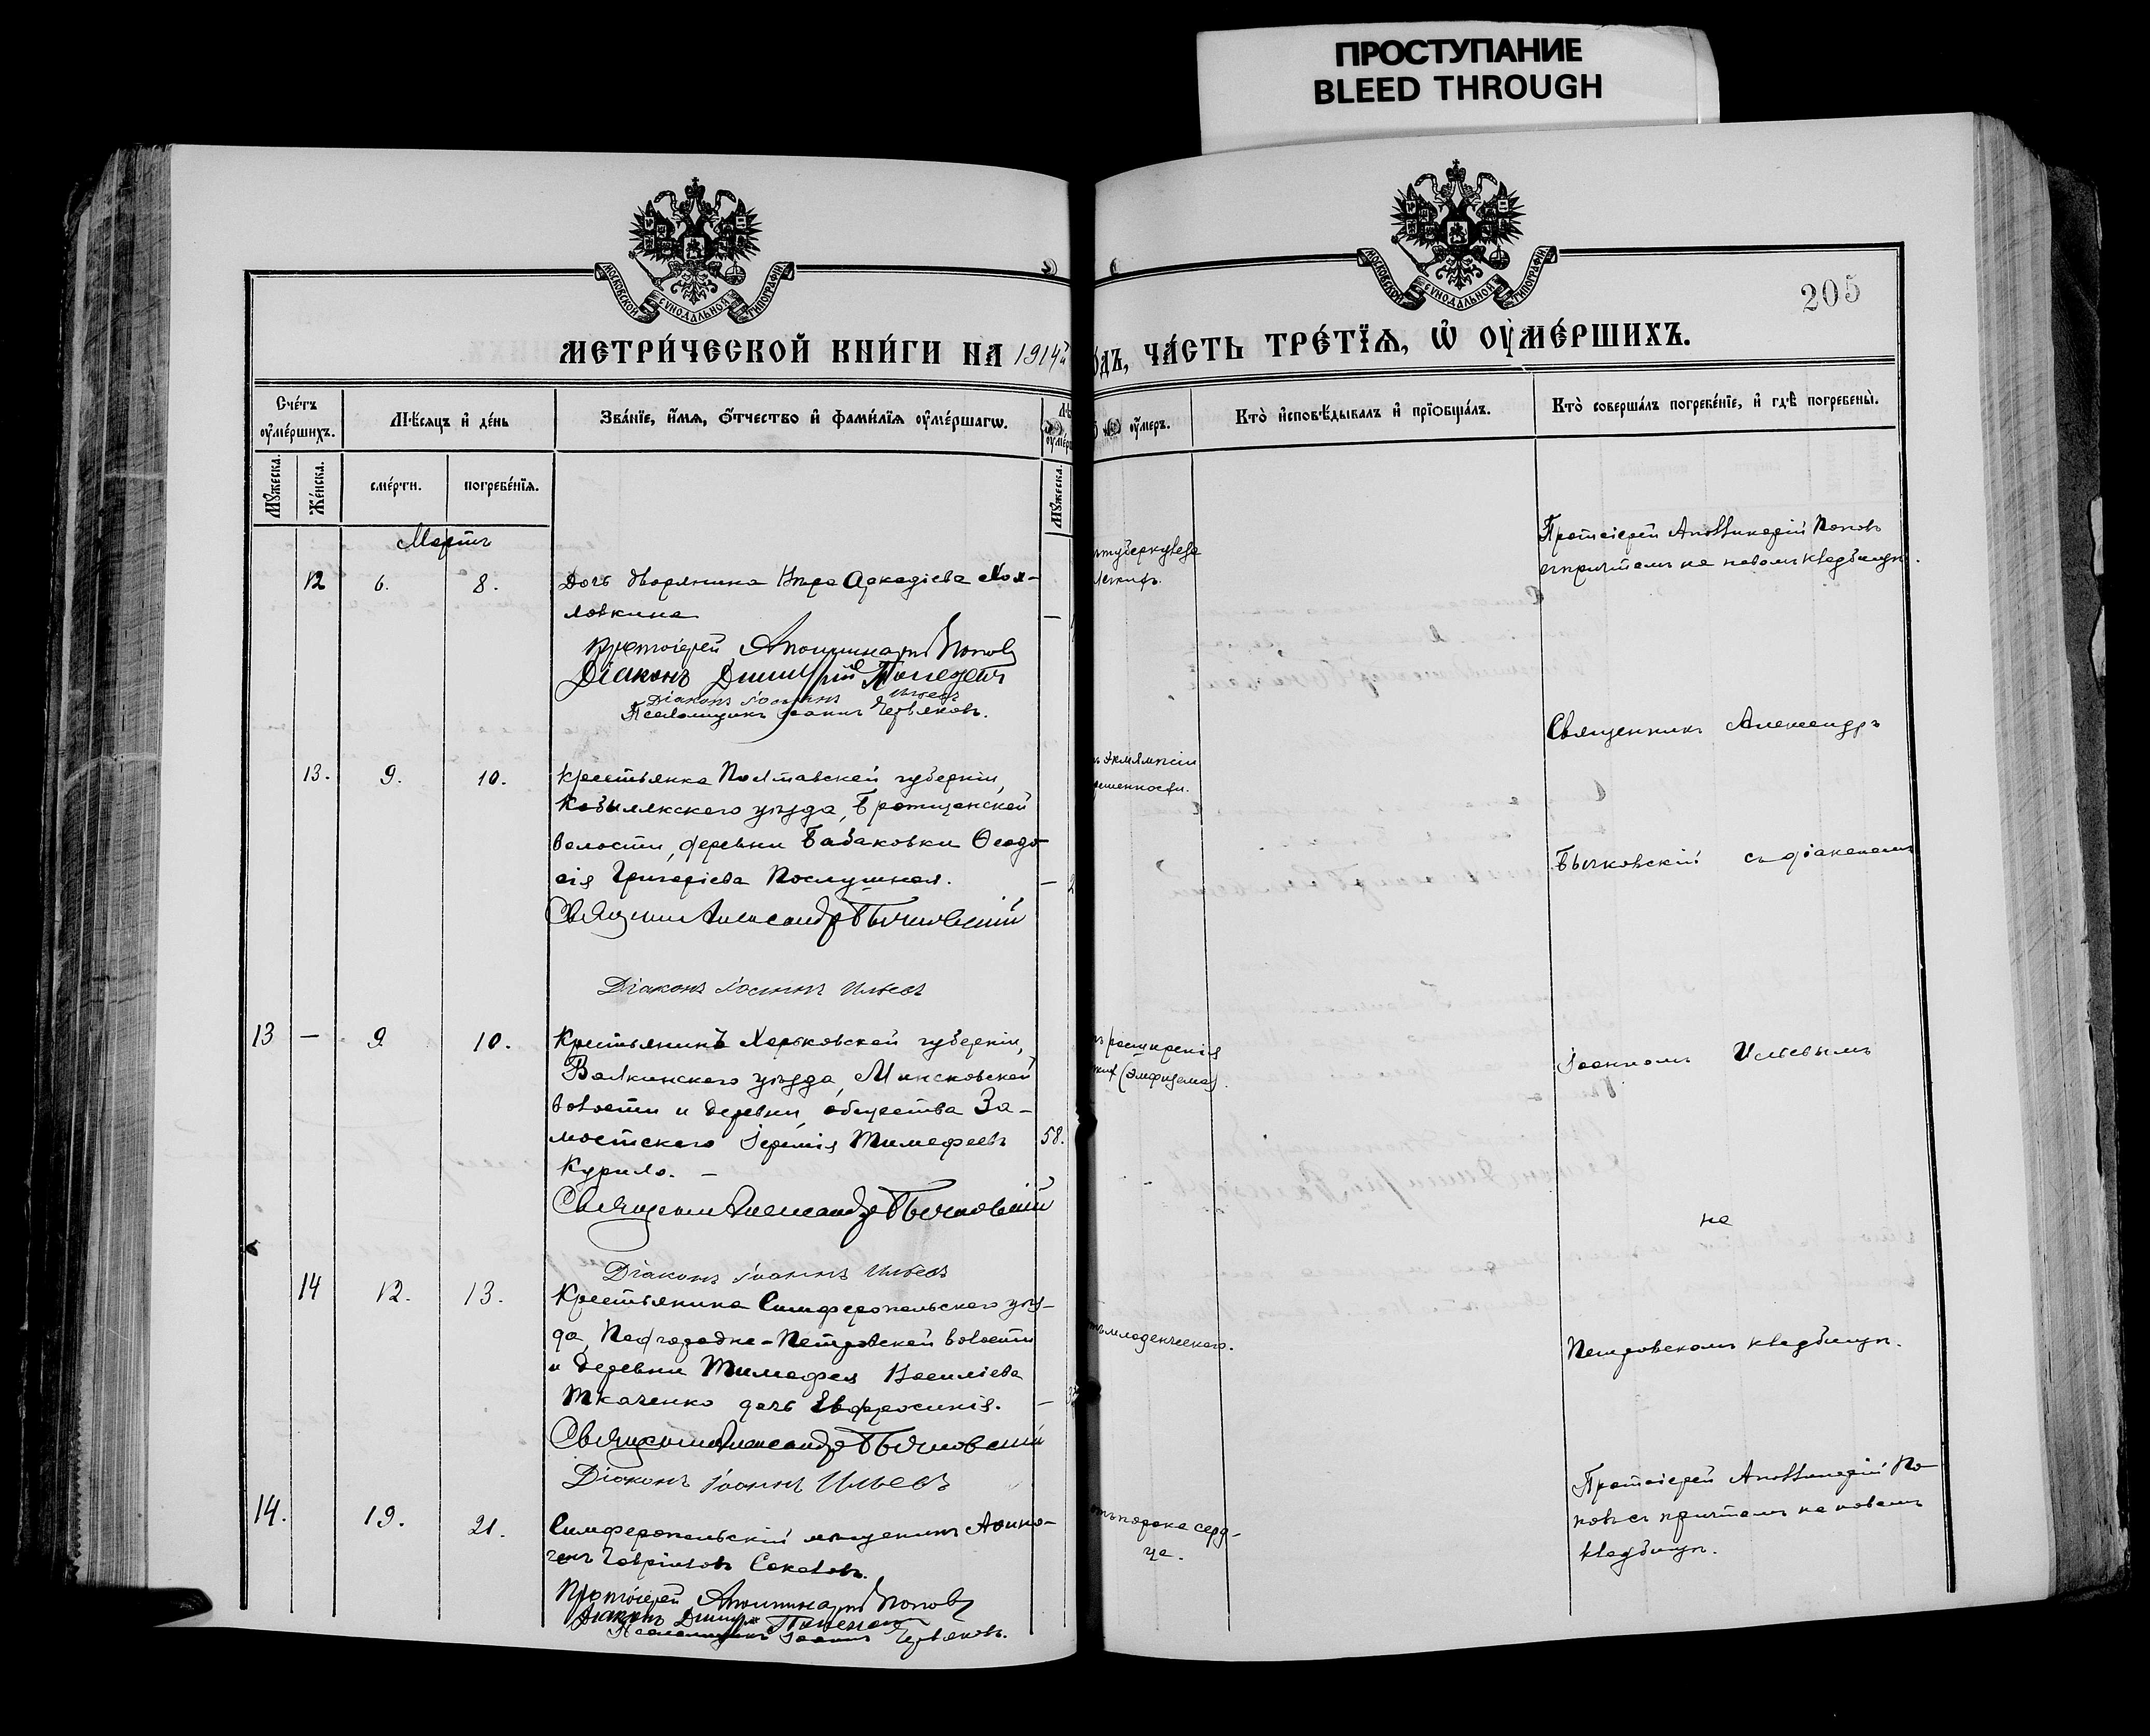 ПРОСТУПАНИЕ
BLEED THROUGH
МОСКОВСКОЙ СѴНОДАЛЬНОЙ ТИПОГРАФІИ
МОСКОВСКОЙ СѴНОДАЛЬНОЙ ТИПОГРАФІИ
205
МЕТРИ́ЧЕСКОЙ КНИ́ГИ НА 1914й
ОДЪ, ЧА́СТЬ ТРЕ́ТЇѦ, Ѡ ОУМЕ́РШИХЪ.
Сче́тъ оуме́ршихъ.
Мѣсяцъ и де́нь
Зва́нїе, и́мя, о́тчество и фами́лїя оуме́ршагѡ.
оуме́ръ.
Кто̀ исповѣ́дывалъ и прїѡбща́лъ.
Кто̀ соверша́лъ погребе́нїе, и гдѣ̀ погребены̀.
Му́жеска.
Же́нска.
сме́рти.
погребе́нїя.
Му́жеска.
Мартъ
12 6. 8. Дочь дворянина Вѣра Аркадіева
ловкина —
Протоіерей Аполлинарій Поповъ
Діаконъ Димитрій
Діаконъ Іоаннъ Ильевъ
Псаломщикъ Іоаннъ Червяковъ.
туберкулеза
легкихъ.
Протоіерей Аполлинарій Поповъ
съ причтомъ на новомъ кладбищѣ.
13. 9. 10. Крестьянка Полтавской губерніи,
Кобылякскаго уѣзда,
волости, деревни Бабаковки Ѳеодо-
сія Григоріева Послушная. —
Священникъ Александръ Бычковскій
Діаконъ Іоаннъ Ильевъ
эклямпсіи
Священникъ Александръ
Бычковскій съ діакономъ
13 — 9 10. Крестьянинъ Харьковской губерніи,
Валкинскаго уѣзда, Минсковской
волости и деревни, общества За-
мостскаго Іеремія Тимофеевъ 58.
Курило. —
Священникъ Александръ Бычковскій
Діаконъ Іоаннъ Ильевъ
расширенія
(эмфизема).
Іоанномъ Ильевымъ
на
14 12. 13. Крестьянина Симферопольскаго уѣз-
да, Подгородне-Петровской волости
и деревни Тимофея Василіева
Ткаченко дочь Евфросинія. —
Священникъ Александръ Бычковскій
Діаконъ Іоаннъ Ильевъ
младенческаго.
Петровскомъ кладбищѣ.
14. 19. 21. Симферопольскій мѣщанинъ Аѳино-
генъ Гавріиловъ Соколовъ.
Протоіерей Аполлинарій Поповъ
Діаконъ Димитрій
Псаломщикъ Іоаннъ Червяковъ.
отъ порока серд-
ца.
Протоіерей Аполлинарій По-
повъ съ причтомъ на новомъ
кладбищѣ.